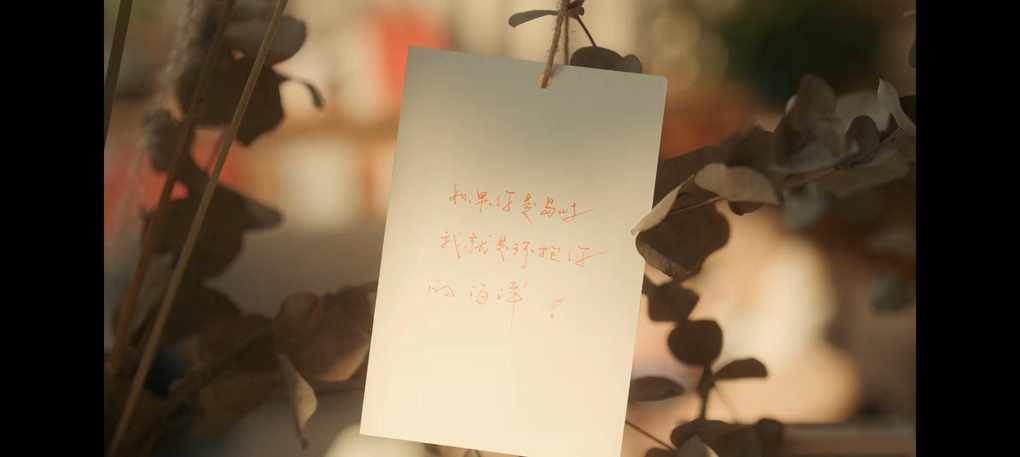 如果你是岛屿
我就是环抱你
的海洋。